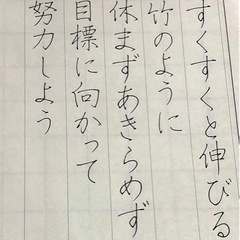 すくすくと伸びる
竹のように
休まずあきらめず
目標に向かって
努力しよう